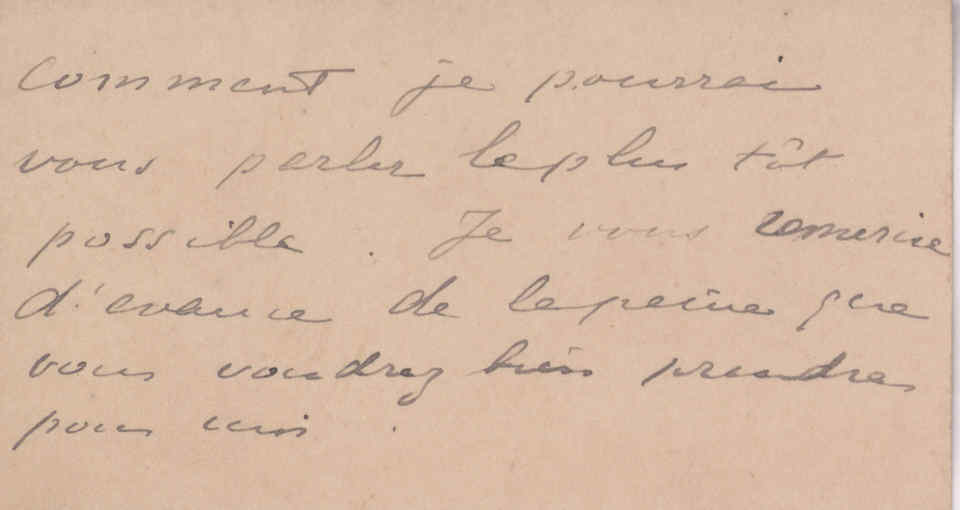 Comment je pourrai
vous parler le plus tôt
possible. Je vous remercie
d'avance de la peine que
vous voudrez bien prendre
pour moi.